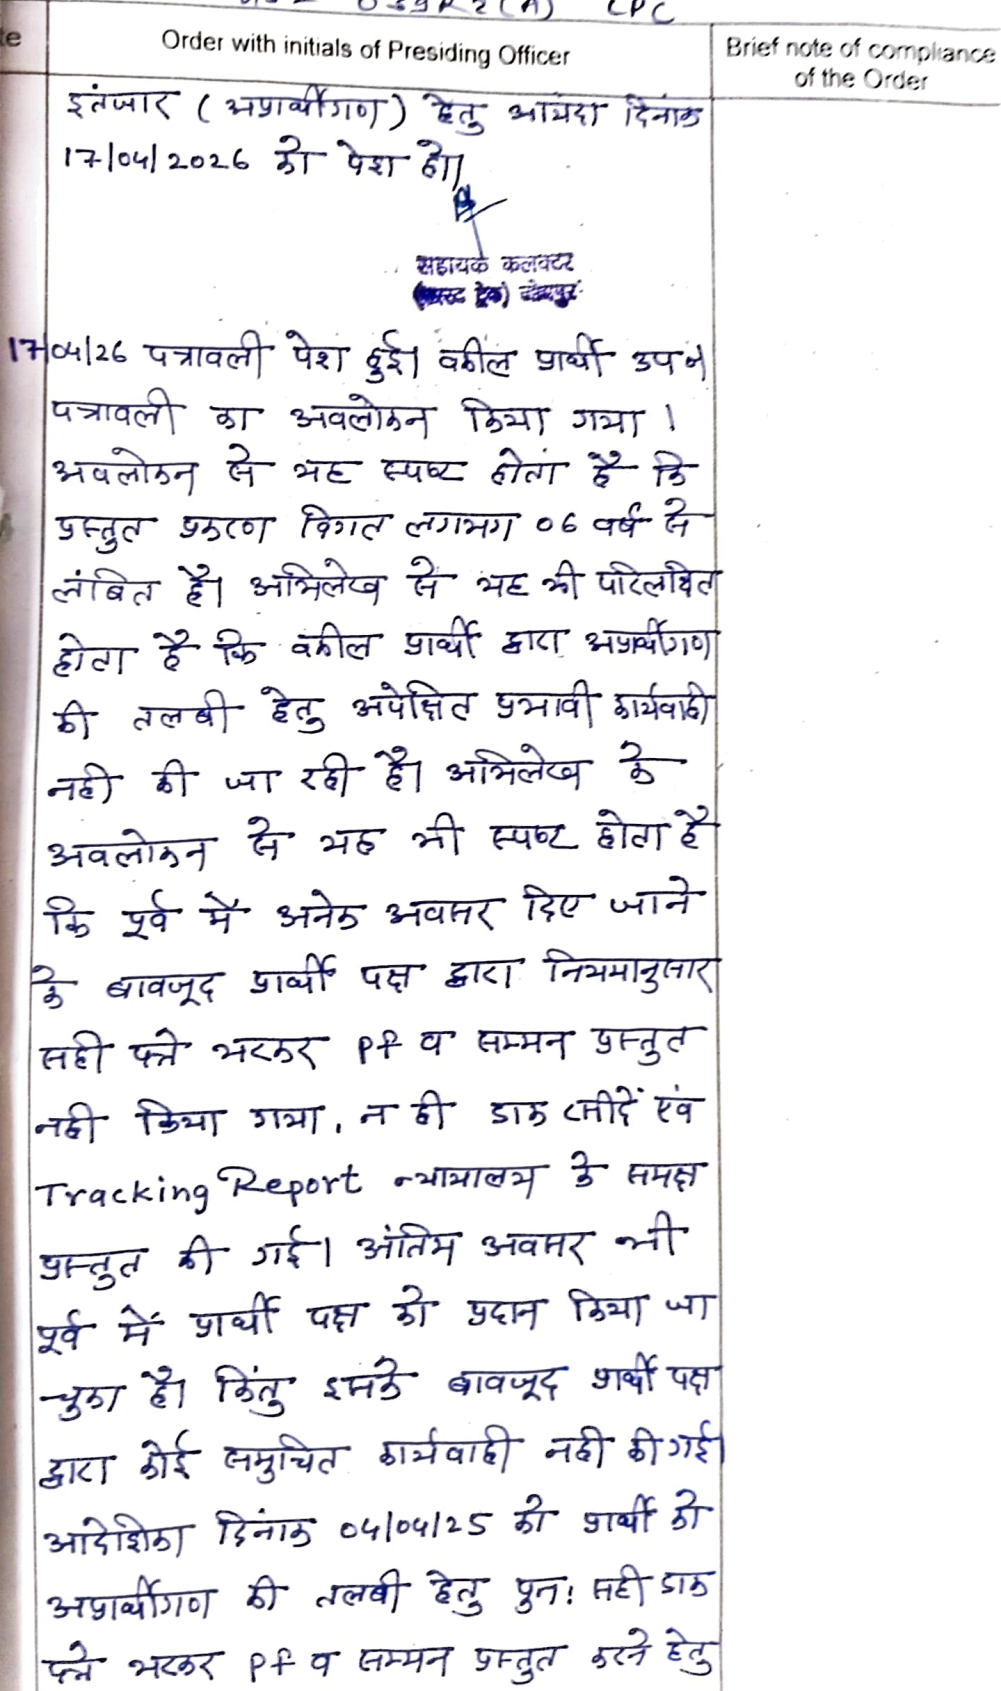 CPC
Order with initials of Presiding Officer
Brief note of compliance
of the Order
इंतजार (अप्रार्थीगण) हेतु आयंदा दिनांक
17/04/2026 को पेश हो।
सहायक कलक्टर
(फास्ट ट्रेक)
17/04/26 पत्रावली पेश हुई। वकील प्रार्थी उप०।
पत्रावली का अवलोकन किया गया।
अवलोकन से यह स्पष्ट होता है कि
प्रस्तुत प्रकरण विगत लगभग 06 वर्ष से
लंबित है। अभिलेख से यह भी परिलक्षित
होता है कि वकील प्रार्थी द्वारा अप्रार्थीगण
की तलबी हेतु अपेक्षित प्रभावी कार्यवाही
नही की जा रही है। अभिलेख के
अवलोकन से यह भी स्पष्ट होता है
कि पूर्व में अनेक अवसर दिए जाने
के बावजूद प्रार्थी पक्ष द्वारा नियमानुसार
सही पते भरकर Pf व सम्मन प्रस्तुत
नही किया गया, न ही डाक रसीदें एंव
Tracking Report न्यायालय के समक्ष
प्रस्तुत की गई। अंतिम अवसर भी
पूर्व में प्रार्थी पक्ष को प्रदान किया जा
चुका है। किंतु इसके बावजूद प्रार्थी पक्ष
द्वारा कोई समुचित कार्यवाही नही की गई।
आदेशिका दिनांक 04/04/25 को प्रार्थी को
अप्रार्थीगण की तलबी हेतु पुन: सही डाक
पते भरकर Pf व सम्मन प्रस्तुत करने हेतु